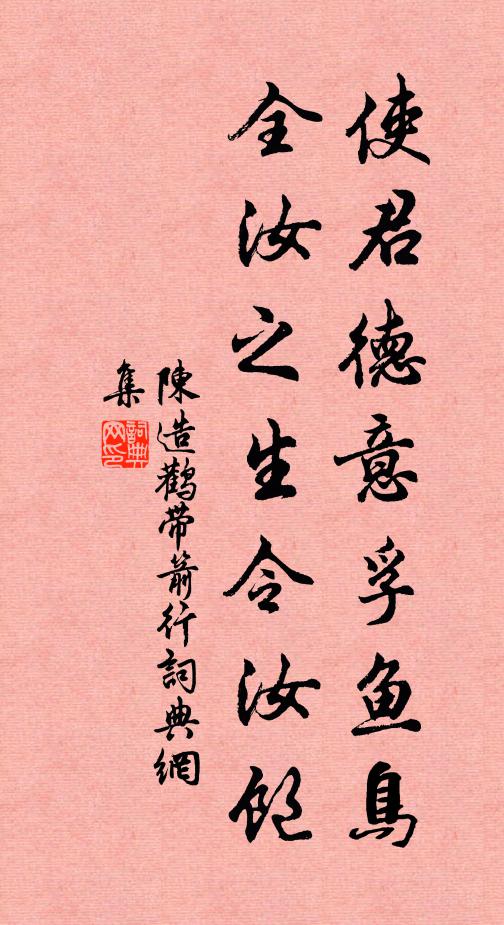 使君德意孚鱼鳥
全汝之生令汝飽
陳造鸛帶箭行詞典網
集
詞典
网印